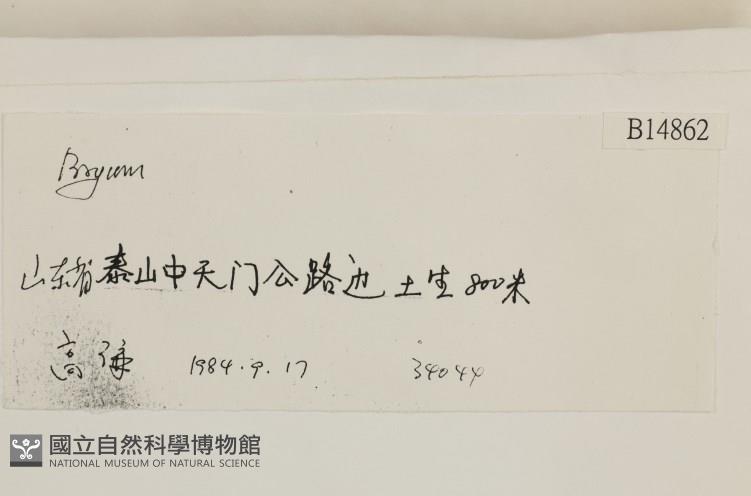 B14862
Bryum
山东省泰山中天门公路边 土生 800米
高谦 1984.9.17 34044
國立自然科學博物館
NATIONAL MUSEUM OF NATURAL SCIENCE